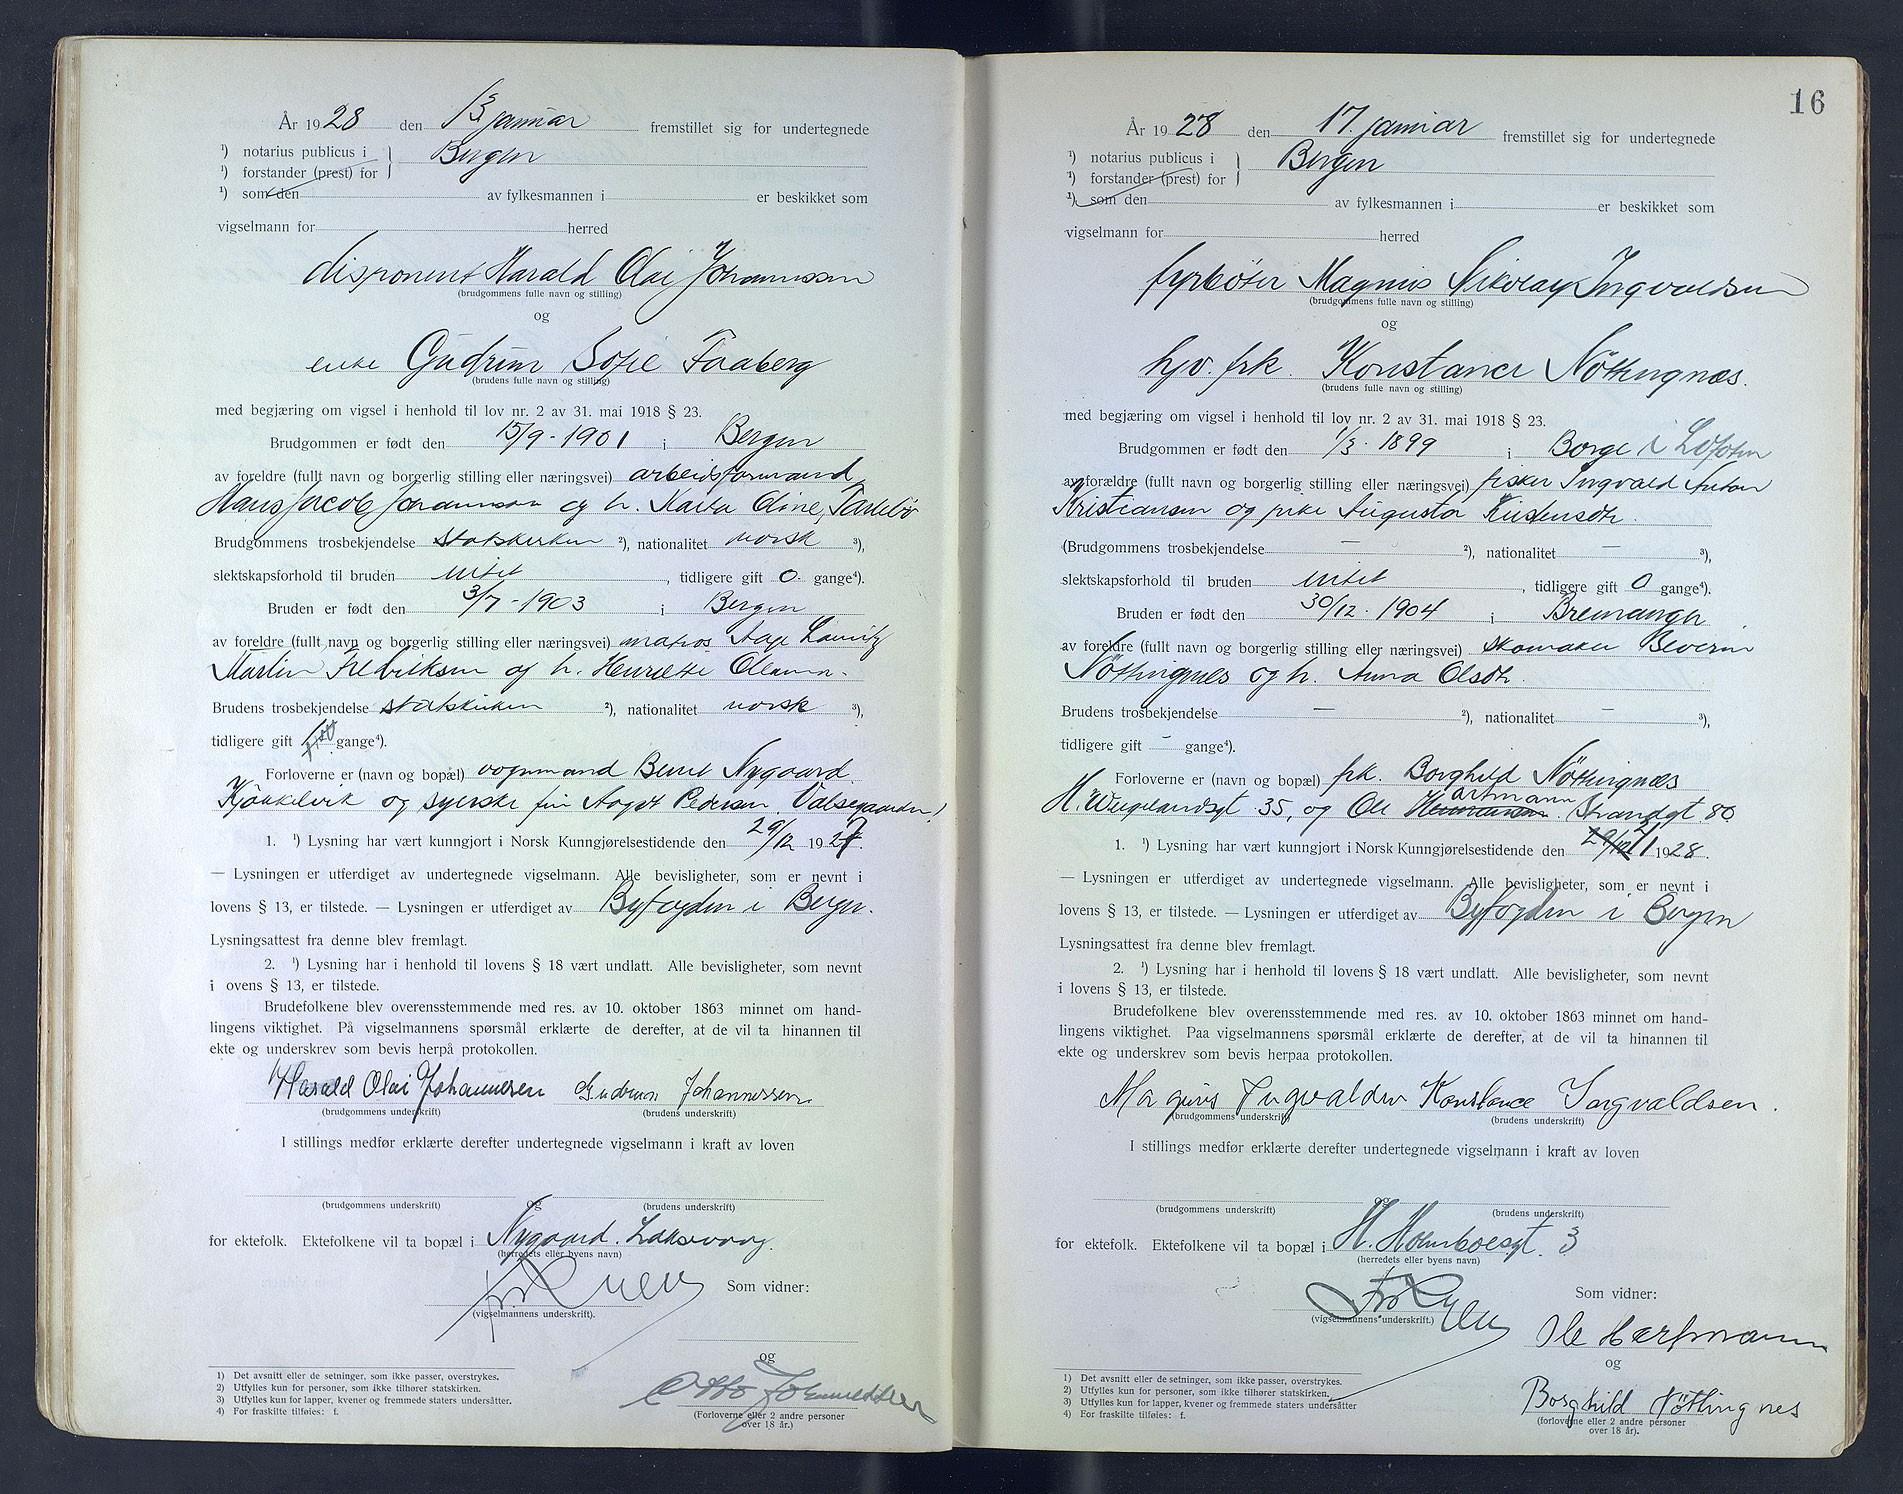 År 1928 den 13 januar fremstillet sig for undertegnede
¹) notarius publicus i
¹) forstander (prest) for
Bergen
¹) som den av fylkesmannen i er beskikket som
vigselmann for herred
disponent Harald Olai Johannessen
(brudgommens fulle navn og stilling)
og
enke Gudrun Sofie Faaberg
(brudens fulle navn og stilling)
med begjæring om vigsel i henhold til lov nr. 2 av 31. mai 1918 § 23.
Brudgommen er født den 15/9 - 1901 i Bergen
av foreldre (fullt navn og borgerlig stilling eller næringsvei) arbeidsformand
Hans Jacob Johannesen og h. Karla Oline,
Brudgommens trosbekjendelse statskirken ²), nationalitet norsk ³),
slektskapsforhold til bruden intet, tidligere gift 0 gange⁴).
Bruden er født den 3/7 - 1903 i Bergen
av foreldre (fullt navn og borgerlig stilling eller næringsvei) matros Aage Lauritz
Martin Fredriksen og h. Henriette
Brudens trosbekjendelse statskirken ²), nationalitet norsk ³),
tidligere gift gange⁴).
Forloverne er (navn og bopæl) vognmand Bernt Nygaard
og syerske fru Aagot Pedersen,
1. ¹) Lysning har vært kunngjort i Norsk Kunngjørelsestidende den 29/12 1927.
— Lysningen er utferdiget av undertegnede vigselmann. Alle bevisligheter, som er nevnt i
lovens § 13, er tilstede. — Lysningen er utferdiget av Byfogden i Bergen.
Lysningsattest fra denne blev fremlagt.
2. ¹) Lysning har i henhold til lovens § 18 vært undlatt. Alle bevisligheter, som nevnt
i ovens § 13, er tilstede.
Brudefolkene blev overensstemmende med res. av 10. oktober 1863 minnet om hand-
lingens viktighet. På vigselmannens spørsmål erklærte de derefter, at de vil ta hinannen til
ekte og underskrev som bevis herpå protokollen.
Harald Olai Johannesen Gudrun Johannessen
(brudgommens underskrift) (brudens underskrift)
I stillings medfør erklærte derefter undertegnede vigselmann i kraft av loven
og
(brudgommens underskrift) (brudens underskrift)
for ektefolk. Ektefolkene vil ta bopæl i Nygaard. Laksevaag.
(herredets eller byens navn)
Som vidner:
(vigselmannens underskrift).
og
Otto
(Forloverne eller 2 andre personer
over 18 år.)
1) Det avsnitt eller de setninger, som ikke passer, overstrykes.
2) Utfylles kun for personer, som ikke tilhører statskirken.
3) Utfylles kun for lapper, kvener og fremmede staters undersåtter.
4) For fraskilte tilføies: f.
16
År 1928 den 17. januar fremstillet sig for undertegnede
¹) notarius publicus i
¹) forstander (prest) for
Bergen
¹) som den av fylkesmannen i er beskikket som
vigselmann for herred
fyrbøter Magnus Nikolay Ingvaldsen
(brudgommens fulle navn og stilling)
og
hjv. frk. Konstance Nöttingnæs.
(brudens fulle navn og stilling)
med begjæring om vigsel i henhold til lov nr. 2 av 31. mai 1918 § 23.
Brudgommen er født den 1/3 - 1899 i Borge i Lofoten
av forældre (fullt navn og borgerlig stilling eller næringsvei) fisker Ingvald Anton
Kristiansen og pike Augusta
(Brudgommens trosbekjendelse — ²), nationalitet — ³),
slektskapsforhold til bruden intet, tidligere gift 0 gange⁴).
Bruden er født den 30/12 - 1904 i Bremanger
av foreldre (fullt navn og borgerlig stilling eller næringsvei) skomaker Severin
Nöttingnes og h. Anna Olsdtr.
Brudens trosbekjendelse — ²), nationalitet — ³),
tidligere gift - gange⁴).
Forloverne er (navn og bopæl) frk. Borghild Nöttingnæs
artmann
H. Wergelandsgt 35, og Ole Hermansen Strandgt. 80.
1. ¹) Lysning har vært kunngjort i Norsk Kunngjørelsestidende den 29/12 2/1 1928.
— Lysningen er utferdiget av undertegnede vigselmann. Alle bevisligheter, som er nevnt i
lovens § 13, er tilstede. — Lysningen er utferdiget av Byfogden i Bergen
Lysningsattest fra denne blev fremlagt.
2. ¹) Lysning har i henhold til lovens § 18 vært undlatt. Alle bevisligheter, som nevnt
i lovens § 13, er tilstede.
Brudefolkene blev overensstemmende med res. av 10. oktober 1863 minnet om hand-
lingens viktighet. Paa vigselmannens spørsmål erklærte de derefter, at de vil ta hinannen til
ekte og underskrev som bevis herpaa protokollen.
Magnus Ingvaldsen Konstance Ingvaldsen.
(brudgommens underskrift) (brudens underskrift)
I stillings medfør erklærte derefter undertegnede vigselmann i kraft av loven
og
(brudgommens underskrift) (brudens underskrift)
for ektefolk. Ektefolkene vil ta bopæl i H. Holmboesgt. 3
(herredets eller byens navn)
Som vidner:
(vigselmannens underskrift.)
Ole Hartmann
og
Borghild Nöttingnes
(forloverne eller 2 andre personer
over 18 år).
1) Det avsnitt eller de setninger, som ikke passer, overstrykes.
2) Utfylles kun for personer, som ikke tilhører statskirken.
3) Utfylles kun for lapper, kvener og fremmede staters undersåtter
4) For fraskilte tilføies: f.